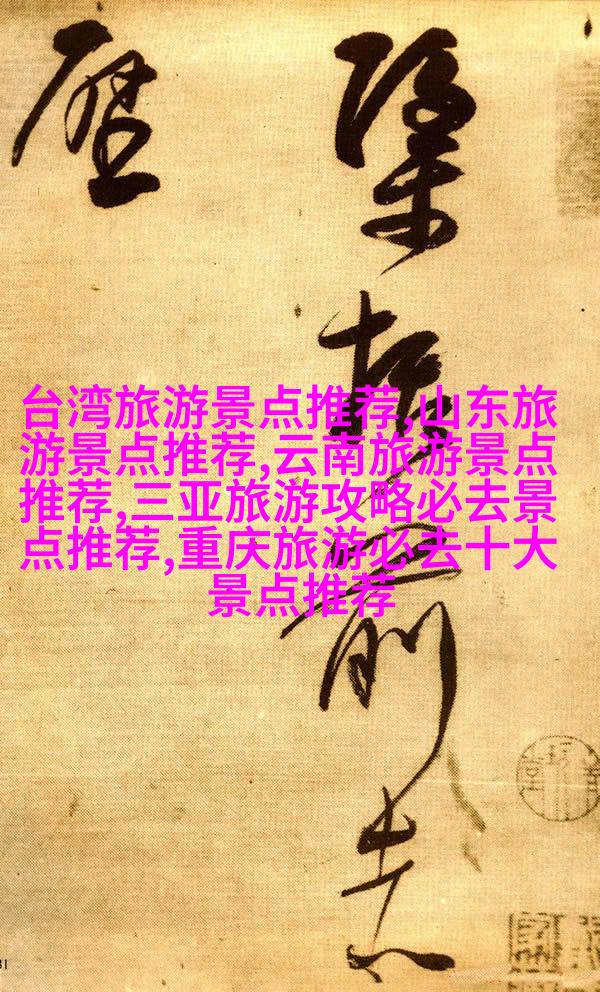 前志
歷
台湾旅游景点推荐,山东旅
游景点推荐,云南旅游景点
推荐,三亚旅游攻略必去景
点推荐,重庆旅游必去十大
景点推荐